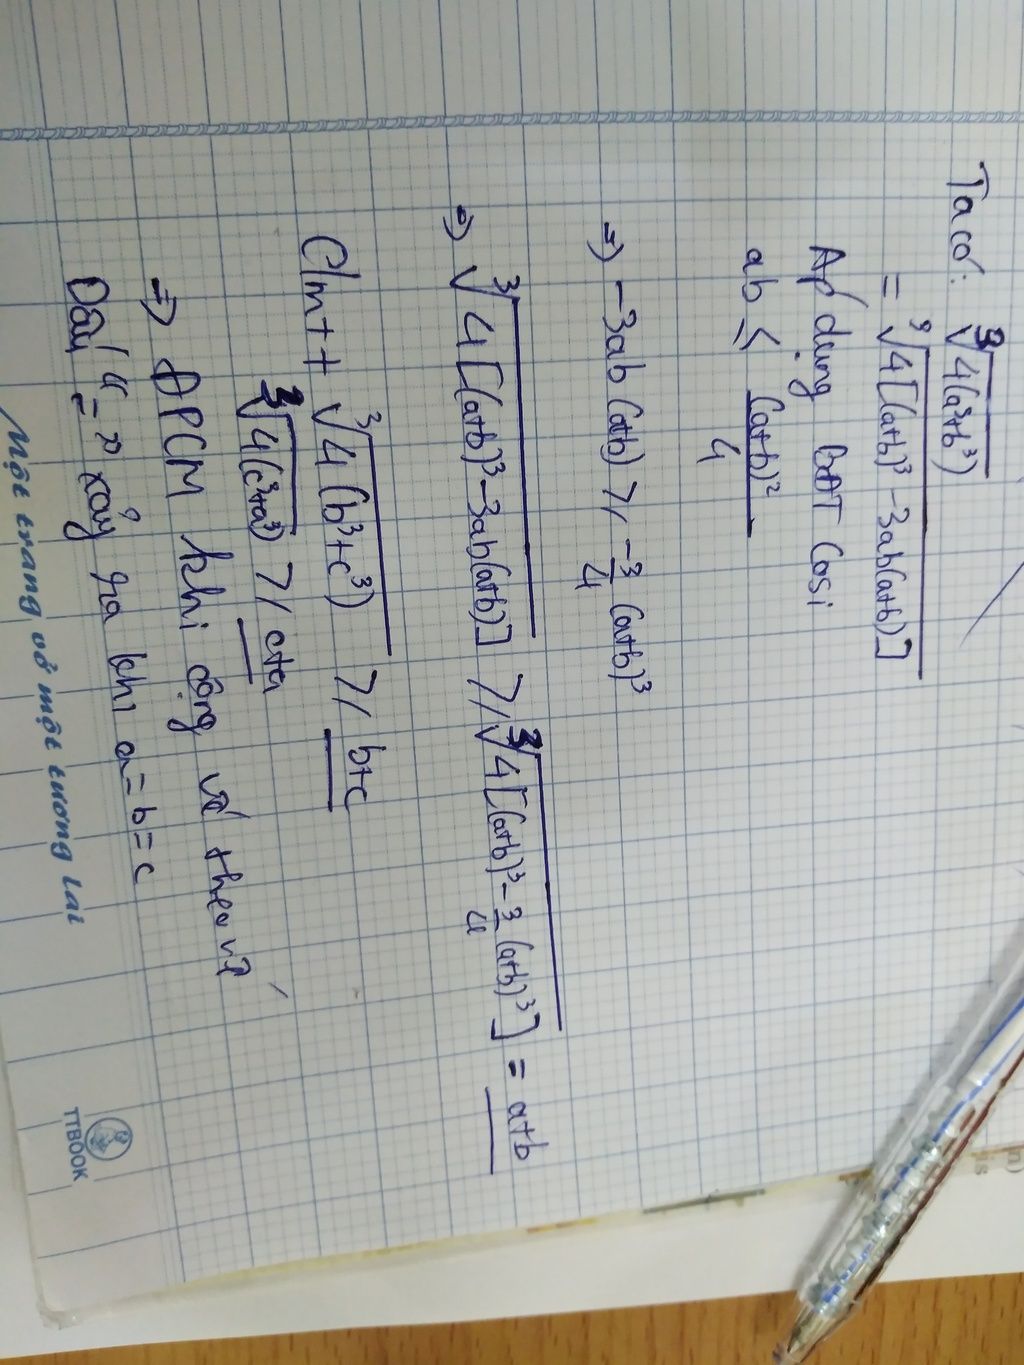 Ta có: ∛4(a³+b³)
= ∛4[(a+b)³-3ab(a+b)]
Áp dụng BĐT Cosi
ab ≤ (a+b)²/4
=> -3ab(a+b) ≥ -3/4 (a+b)³
=> ∛4[(a+b)³-3ab(a+b)] ≥ ∛4[(a+b)³-3/4(a+b)³] = a+b
C/m tt ∛4(b³+c³) ≥ b+c
∛4(c³+a³) ≥ c+a
=> ĐPCM khi cộng vế theo vế
Dấu "=" xảy ra khi a=b=c
Một trang vở một tương lai
TTBOOK